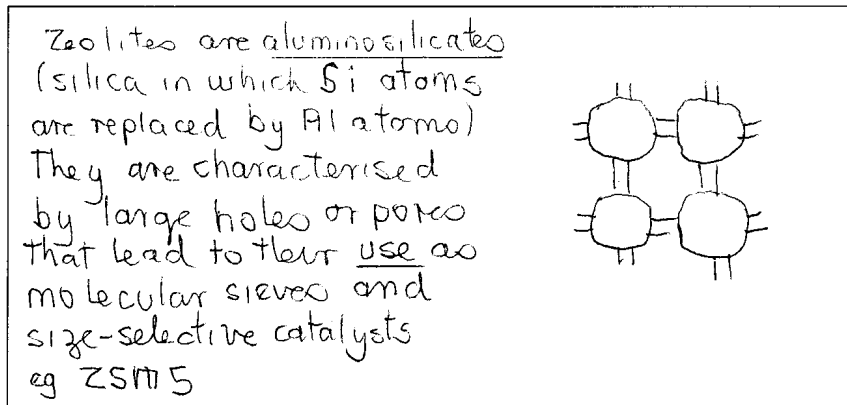 Zeolites are aluminosilicates
(silica in which Si atoms
are replaced by Al atoms)
They are characterised
by large holes or pores
that lead to their use as
molecular sieves and
size-selective catalysts
eg ZSM5